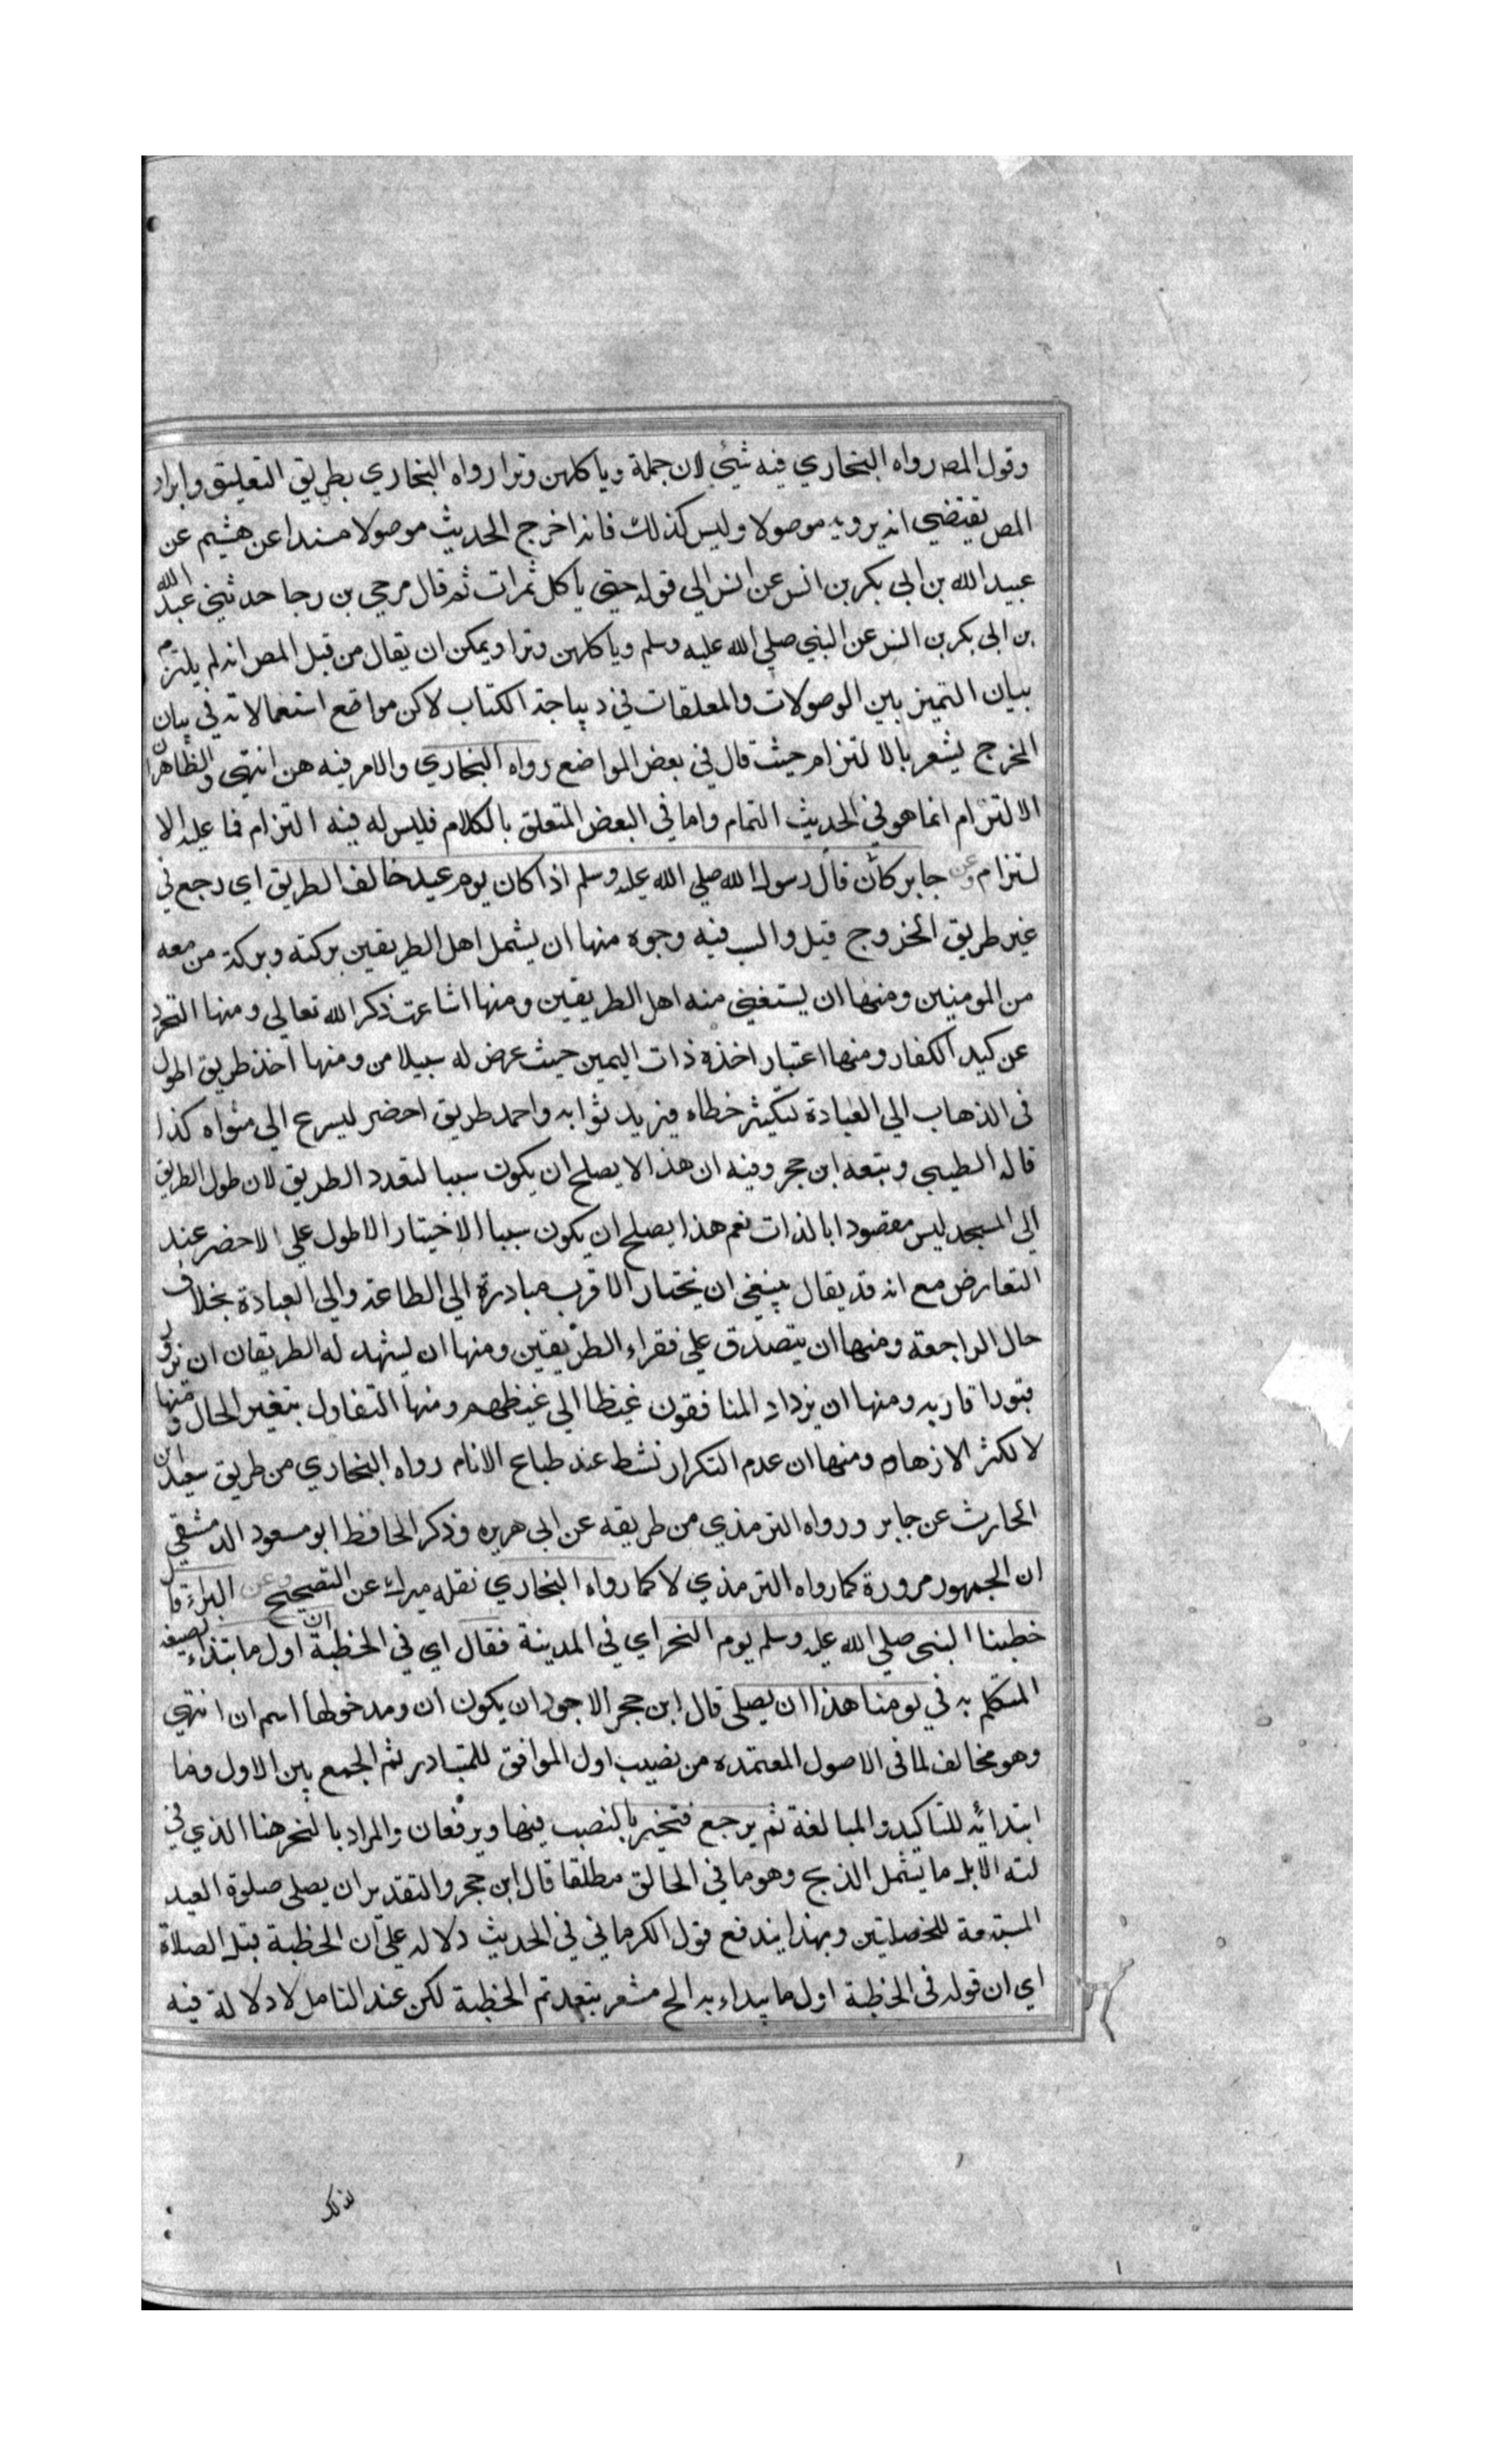 وقول المص رواه البخاري فيه شيئ لان جملة وياكلهن وترا رواه البخاري بطريق التعليق وايراد
المص يقتضي انه يرويه موصولا وليس كذلك فانه اخرج الحديث موصولا مسندا عن هشيم عن
عبيد الله بن ابي بكر بن انس عن انس الي قوله حتي ياكل تمرات ثم قال مرجي بن رجا حدثني عبيد الله
بن ابي بكر بن انس عن النبي صلي الله عليه وسلم وياكلهن وترا ويمكن ان يقال من قبل المص انه لم يلتزم
بيان التميز بين الموصولات والمعلقات في ديباجة الكتاب لاكن مواضع استعمالاته في بيان
المخرج يشعر بالالتزام حيث قال في بعض المواضع رواه البخاري والامر فيه هن انتهي والظاهر ان
الالتزام انما هو في الحديث التمام واما في البعض المتعلق بالكلام فليس له فيه التزام فما عليه الا
لتزام وعن جابر كان قال رسول الله صلي الله عليه وسلم اذا كان يوم عيد خالف الطريق اي رجع في
غير طريق الخروج قيل والسب فيه وجوه منها ان يشمل اهل الطريقين بركته وبركة من معه
من المومنين ومنها ان يستغني منه اهل الطريقين ومنها اشاعت ذكر الله تعالي ومنها التحرد
عن كيد الكفار ومنها اعتبار اخذه ذات اليمين حيث عرض له سبيلا من ومنها اخذ طريق اطول
في الذهاب الي العبادة لتكيثر خطاه فيزيد ثوابه واحمد طريق احضر ليسرع الي مثواه كذا
قاله الطيبي وبتعه ابن حجر وفيه ان هذا لا يصلح ان يكون سببا لتعدد الطريق لان طول الطريق
الي المسجد ليس مقصودا بالذات نعم هذا يصلح ان يكون سببا الاختيار الاطول علي الاحضر عند
التعارض مع انه قد يقال ينبغي ان يختار الاقرب مبادرة الي الطاعة والي العبادة بخلاف
حال المراجعة ومنها ان يتصدق علي فقراء الطريقين ومنها ان يشهد له الطريقان ان يزور
قبور اقاربه ومنها ان يزداد المنافقون غيظا الي غيظهم ومنها التفاول بتغير الحال ومنها
لا لكثر الازهام ومنها ان عدم التكرار نشط عند طباع الانام رواه البخاري من طريق سعيد بن
الحارث عن جابر ورواه الترمذي من طريقه عن ابي هريره وذكر الحافظ ابو مسعود الدمشقي
ان الجمهور مرورة كما رواه الترمذي لا كما رواه البخاري نقله ميرك عن التصحيح وعن البراء قال
خطبنا النبي صلي الله عليه وسلم يوم النحر اي في المدينة فقال اي في الخطبة ان اول ما نبتداء بصيغه
المتكلم به في يومنا هذا ان يصلي قال ابن حجر الاجود ان يكون ان ومدخولها اسم ان انتهي
وهو مخالف لما في الاصول المعتمده من نصيب اول الموافق للمتبادر ثم الجمع بين الاول وما
ابتدائه للتاكيد والمبالغة ثم يرجع فتخير بالنصب فيها ويرفعان والمراد بالنحر هنا الذي في
لته الابل ما يشمل الذبح وهو ما في الحالق مطلقا قال ابن حجر والتقدير ان يصلي صلوة العيد
المستبتعة للخصلتين وبهذا يندفع قول الكرماني في الحديث دلاله علي ان الخطبة قبل الصلاة
اي ان قوله في الخطبة اول ما يبداء به الح مشعر بتعدتم الخطبة لكن عند التامل لا دلالة فيه
لذلك